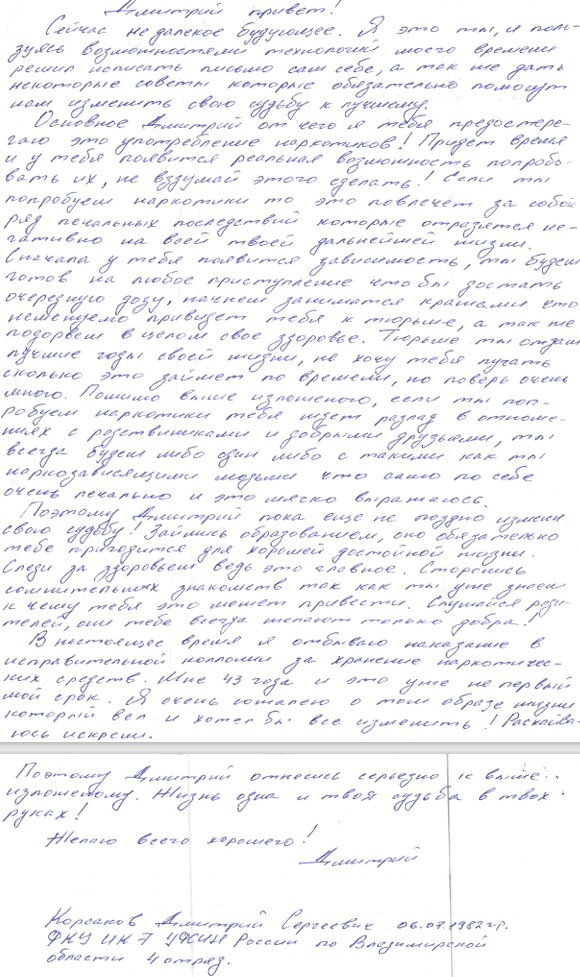 Дмитрий привет!
Сейчас не далекое будующее. Я это ты, и поль-
зуясь возможностями технологий моего времени
решил написать письмо сам себе, а так же дать
некоторые советы которые обязательно помогут
нам изменить свою судьбу к лучшему.
Основное Дмитрий от чего я тебя предостере-
гаю это употребление наркотиков! Придет время
и у тебя появится реальная возможность попробо-
вать их, не вздумай этого сделать! Если ты
попробуеш наркотики то это повлечет за собой
ряд печальных последствий которые отразятся не-
гативно на всей твоей дальнейшей жизни.
Сначала у тебя появится зависимость, ты будеш
готов на любое приступление что бы достать
очередную дозу, начнеш заниматся кражами что
неменуемо приведет тебя к тюрьме, а так же
подорвеш в целом свое здоровье. Тюрьме ты отдаш
лучшие годы своей жизни, не хочу тебя пугать
сколько это займет по времени, но поверь очень
много. Помимо выше изложеного, если ты поп-
робуеш наркотики тебя ждет разлад в отноше-
ниях с родствиниками и добрыми друзьями, ты
всегда будеш либо один либо с такими как ты
наркозависящими людьми что само по себе
очень печально и это мягко выражаюсь.
Поэтому Дмитрий пока еще не поздно измени
свою судьбу! Займись образованием, оно обязателько
тебе пригодится для хорошей достойной жизни.
Следи за здоровьем ведь это главное. Сторонись
сомнительных знакомств так как ты уже знаеш
к чему тебя это может привести. Слушайся роди-
телей, они тебе всегда желают только добра!
В настоящее время я отбываю наказание в
исправительной коллонии за хранение наркотичес-
ких средств. Мне 43 года и это уже не первый
мой срок. Я очень сожалею о том образе жизни
который вел и хотел бы все изменить! Раскаива-
юсь искрени.
Поэтому Дмитрий отнесись серьезно к выше
изложеному. Жизнь одна и твоя судьба в твох
руках!
Желаю всего хорошего!
Дмитрий
Корсаков Дмитрий Сергеевич 06.07.1982 г.р.
ФКУ ИК 7 УФСИН России по Владимирской
области 4 отряд.